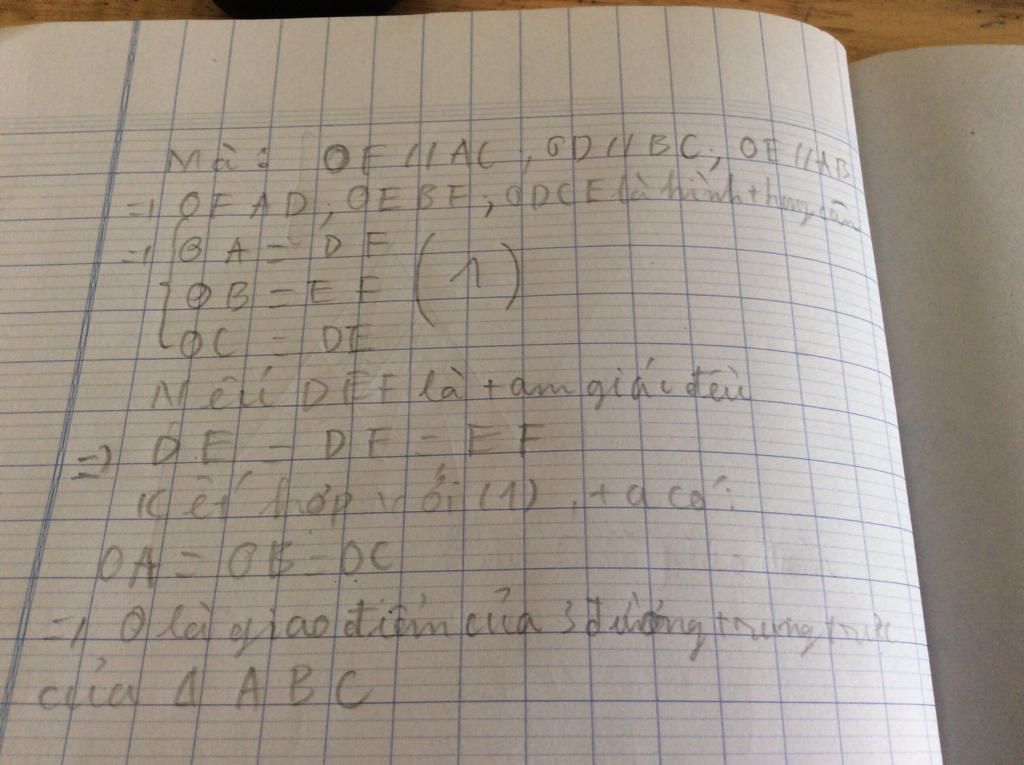 Mà: OF // AC, OD // BC, OE // AB
=> OFAD; OEBF; ODCE là hình thang cân
=> { OA = DF
OB = EF (1)
OC = DE
Nếu DEF là tam giác đều
=> DE = DF = EF
Kết hợp với (1), ta có:
OA = OB = OC
=> O là giao điểm của 3 đường trung trực
của Δ ABC